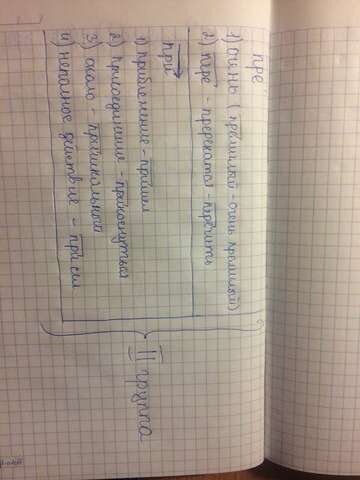 пре
1) очень (премилый - очень премилый)
2) пере - пререкатся - перечить
при
1) приближение - пришел
2) присоединение - прикоснуться
3) около - пришкольный
4) неполное действие - присел
II группа